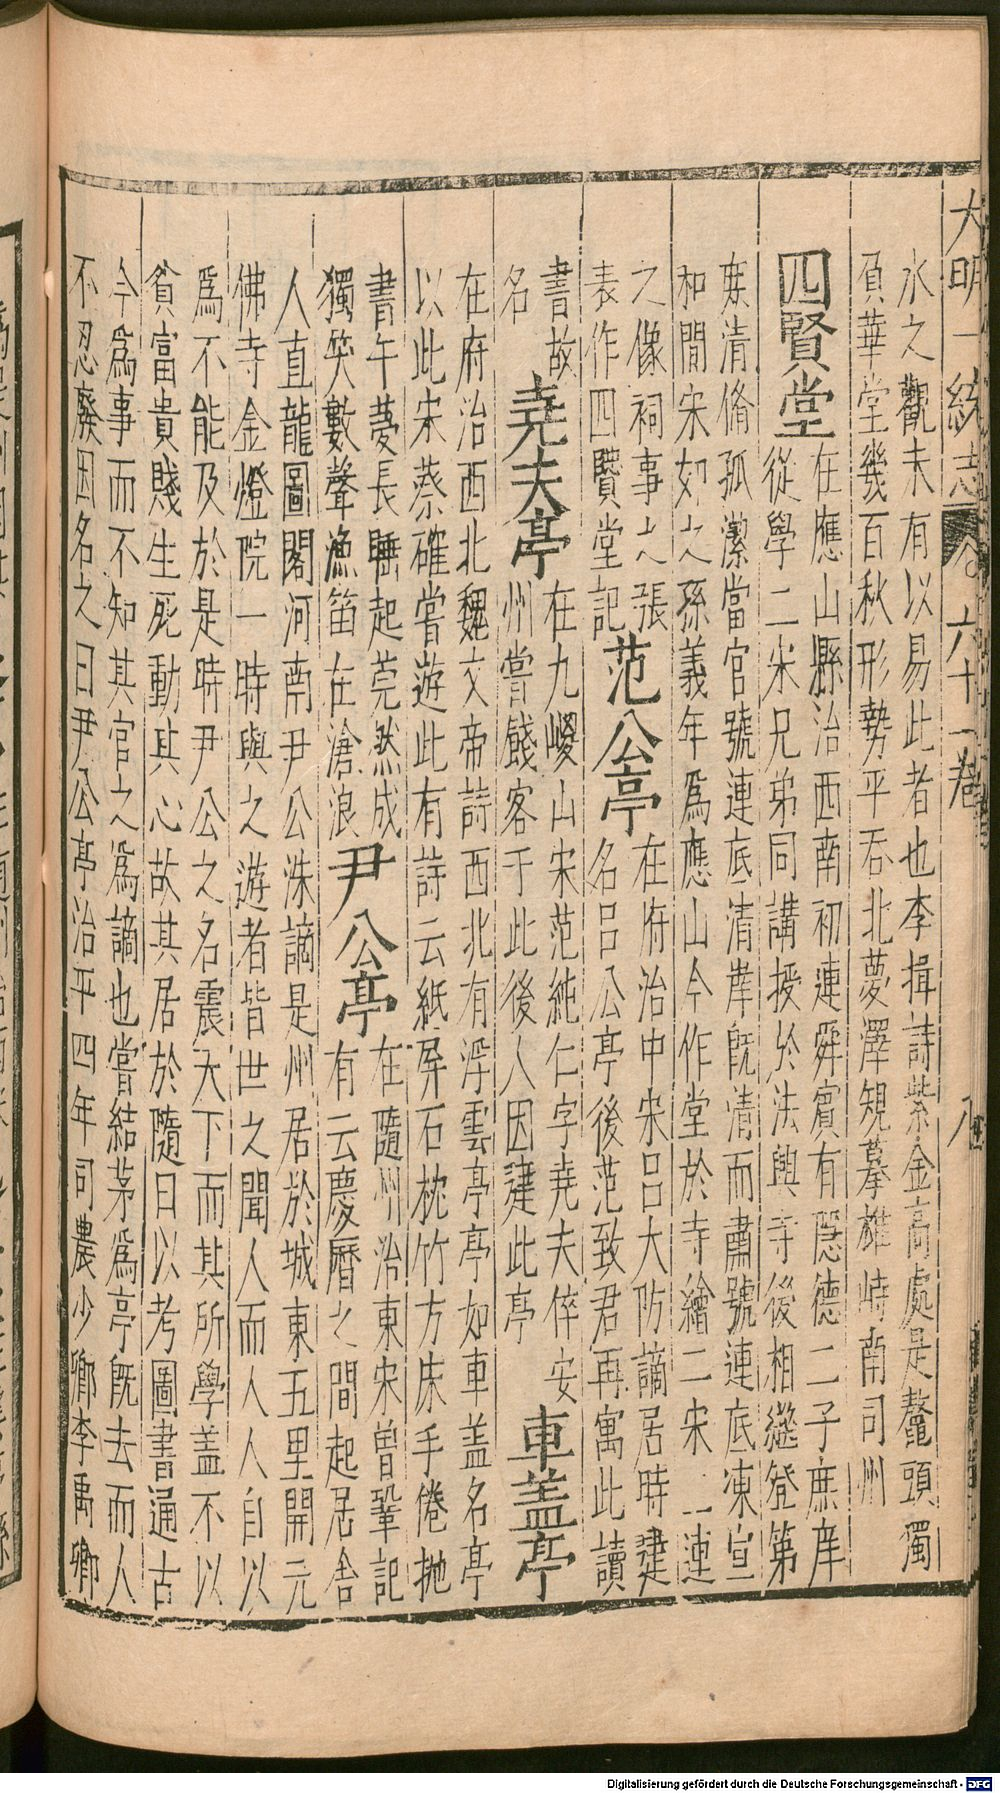 大明一統志 六十一卷 八
水之觀未有以易此者也李揖詩紫金高處是鼇頭獨
負華堂幾百秋形勢平吞北夢澤規摹雄峙南司州
四賢堂
在應山縣治西南初連舜賓有隱德二子庶庠
從學二宋兄弟同講授於法興寺後相繼登第
庶清脩孤潔當官號連底清庠旣清而肅號連底凍宣
和間宋如之孫義年爲應山令作堂於寺繪二宋二連
之像祠事之張
表作四賢堂記
范公亭
在府治中宋呂大防謫居時建
名呂公亭後范致君再寓此讀
書故
名
堯夫亭
在九嵕山宋范純仁字堯夫倅安
州嘗餞客于此後人因建此亭
車蓋亭
在府治西北魏文帝詩西北有浮雲亭亭如車蓋名亭
以此宋蔡確嘗遊此有詩云紙屏石枕竹方床手倦抛
書午夢長睡起莞然成
獨笑數聲漁笛在滄浪
尹公亭
在隨州治東宋曾鞏記
有云慶曆之間起居舍
人直龍圖閣河南尹公洙謫是州居於城東五里開元
佛寺金燈院一時與之遊者皆世之聞人而人人自以
爲不能及於是時尹公之名震天下而其所學蓋不以
貧富貴賤生死動其心故其居於隨日以考圖書通古
今爲事而不知其官之爲謫也嘗結茅爲亭旣去而人
不忍廢因名之曰尹公亭治平四年司農少卿李禹卿
Digitalisierung gefördert durch die Deutsche Forschungsgemeinschaft - DFG